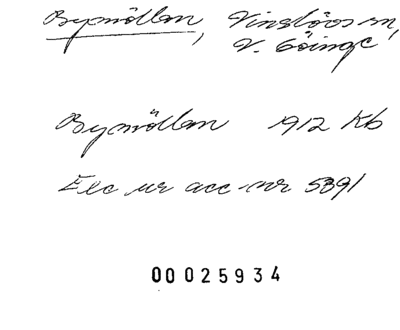 Bymöllan, Vinslövs sn,
V. Göinge
Bymöllan 1912 Kb
Exc ur acc.-nr 5391
00025934